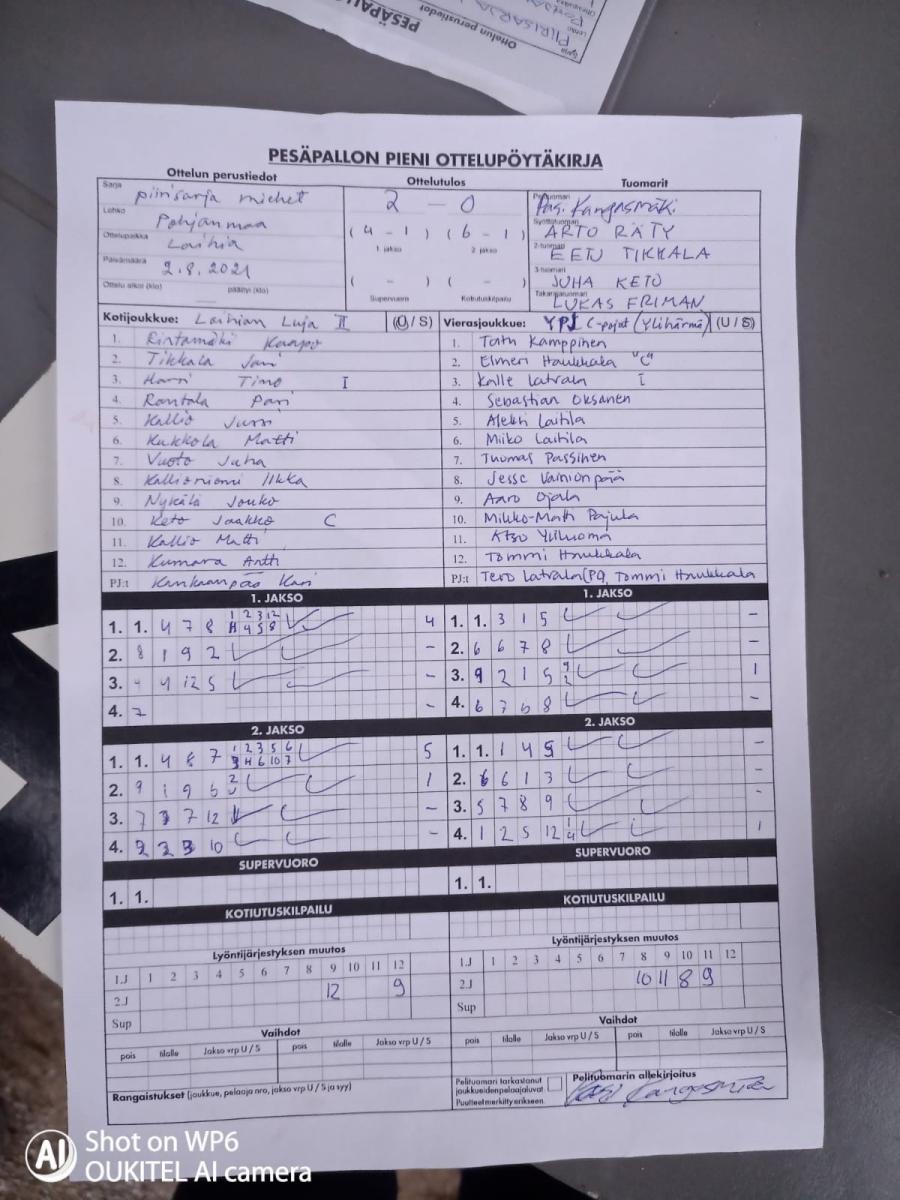 PESÄPALLO
Ottelun perustiedot
PIIRISARJA
PESÄPALLON PIENI OTTELUPÖYTÄKIRJA
Ottelun perustiedot Ottelutulos Tuomarit
Sarja piirisarja miehet 2 - 0 Pelituomari Kangasmäki
Lohko Pohjanmaa (4 - 1) (6 - 1) Syöttötuomari ARTO RÄTY
Ottelupaikka Laihia 1 jakso 2 jakso 2-tuomari EETU TIKKALA
Päivämäärä 2.8.2021 ( - ) ( - ) 3-tuomari JUHA KETO
Ottelu alkoi (klo) päättyi (klo) Supervuoro Kotiutuskilpailu Takarajatuomari LUKAS FRIMAN
Kotijoukkue: Laihian Luja II (U / S) Vierasjoukkue: YPJ C-pojat (Ylihärmä) (U / S)
1. Rintamäki Kaapo 1. Kamppinen
2. Tikkala Jani 2. Elmeri Haukkala "C"
3. Harri Timo I 3. Kalle Latvala I
4. Rantala Pasi 4. Sebastian Oksanen
5. Kallio Jussi 5. Aleksi Laitila
6. Kukkola Matti 6. Miiko Laitila
7. Vuoto Juha 7. Tuomas Passinen
8. Kallioniemi Ilkka 8. Jesse Vainionpää
9. Nykälä Jouko 9. Aaro Ojala
10. Keto Jaakko C 10. Mikko-Matti Pajula
11. Kallio Matti 11. Atso Yliluoma
12. Kumara Antti 12. Tommi Haukkala
PJ:t Kankaanpää Kari PJ:t Tero Latvala (PJ), Tommi Haukkala
1. JAKSO 1. JAKSO
1. 1. 4 7 8 4 1. 1. 3 1 5 -
2. 8 1 9 2 - 2. 6 6 7 8 -
3. 4 4 12 5 - 3. 9 2 1 5 1
4. 7 - 4. 6 7 6 8 -
2. JAKSO 2. JAKSO
1. 1. 4 8 7 5 1. 1. 1 4 5 -
2. 9 1 9 6 1 2. 6 6 1 3 -
3. 7 7 12 - 3. 5 7 8 9 -
4. 2 2 3 10 - 4. 1 2 5 12 1
SUPERVUORO SUPERVUORO
1. 1. 1. 1.
KOTIUTUSKILPAILU KOTIUTUSKILPAILU
Lyöntijärjestyksen muutos Lyöntijärjestyksen muutos
1.J 1 2 3 4 5 6 7 8 9 10 11 12 1.J 1 2 3 4 5 6 7 8 9 10 11 12
2.J 12 9 2.J 10 11 8 9
Sup Sup
Vaihdot Vaihdot
pois tilalle Jakso vrp U / S pois tilalle Jakso vrp U / S pois tilalle Jakso vrp U / S pois tilalle Jakso vrp U / S
Rangaistukset (joukkue, pelaaja nro, jakso vrp U / S ja syy)
Pelituomari tarkastanut joukkueiden pelaajaluvat
Puutteet merkitty erikseen.
Pelituomarin allekirjoitus
Pasi Kangasmäki
AI Shot on WP6
OUKITEL AI camera